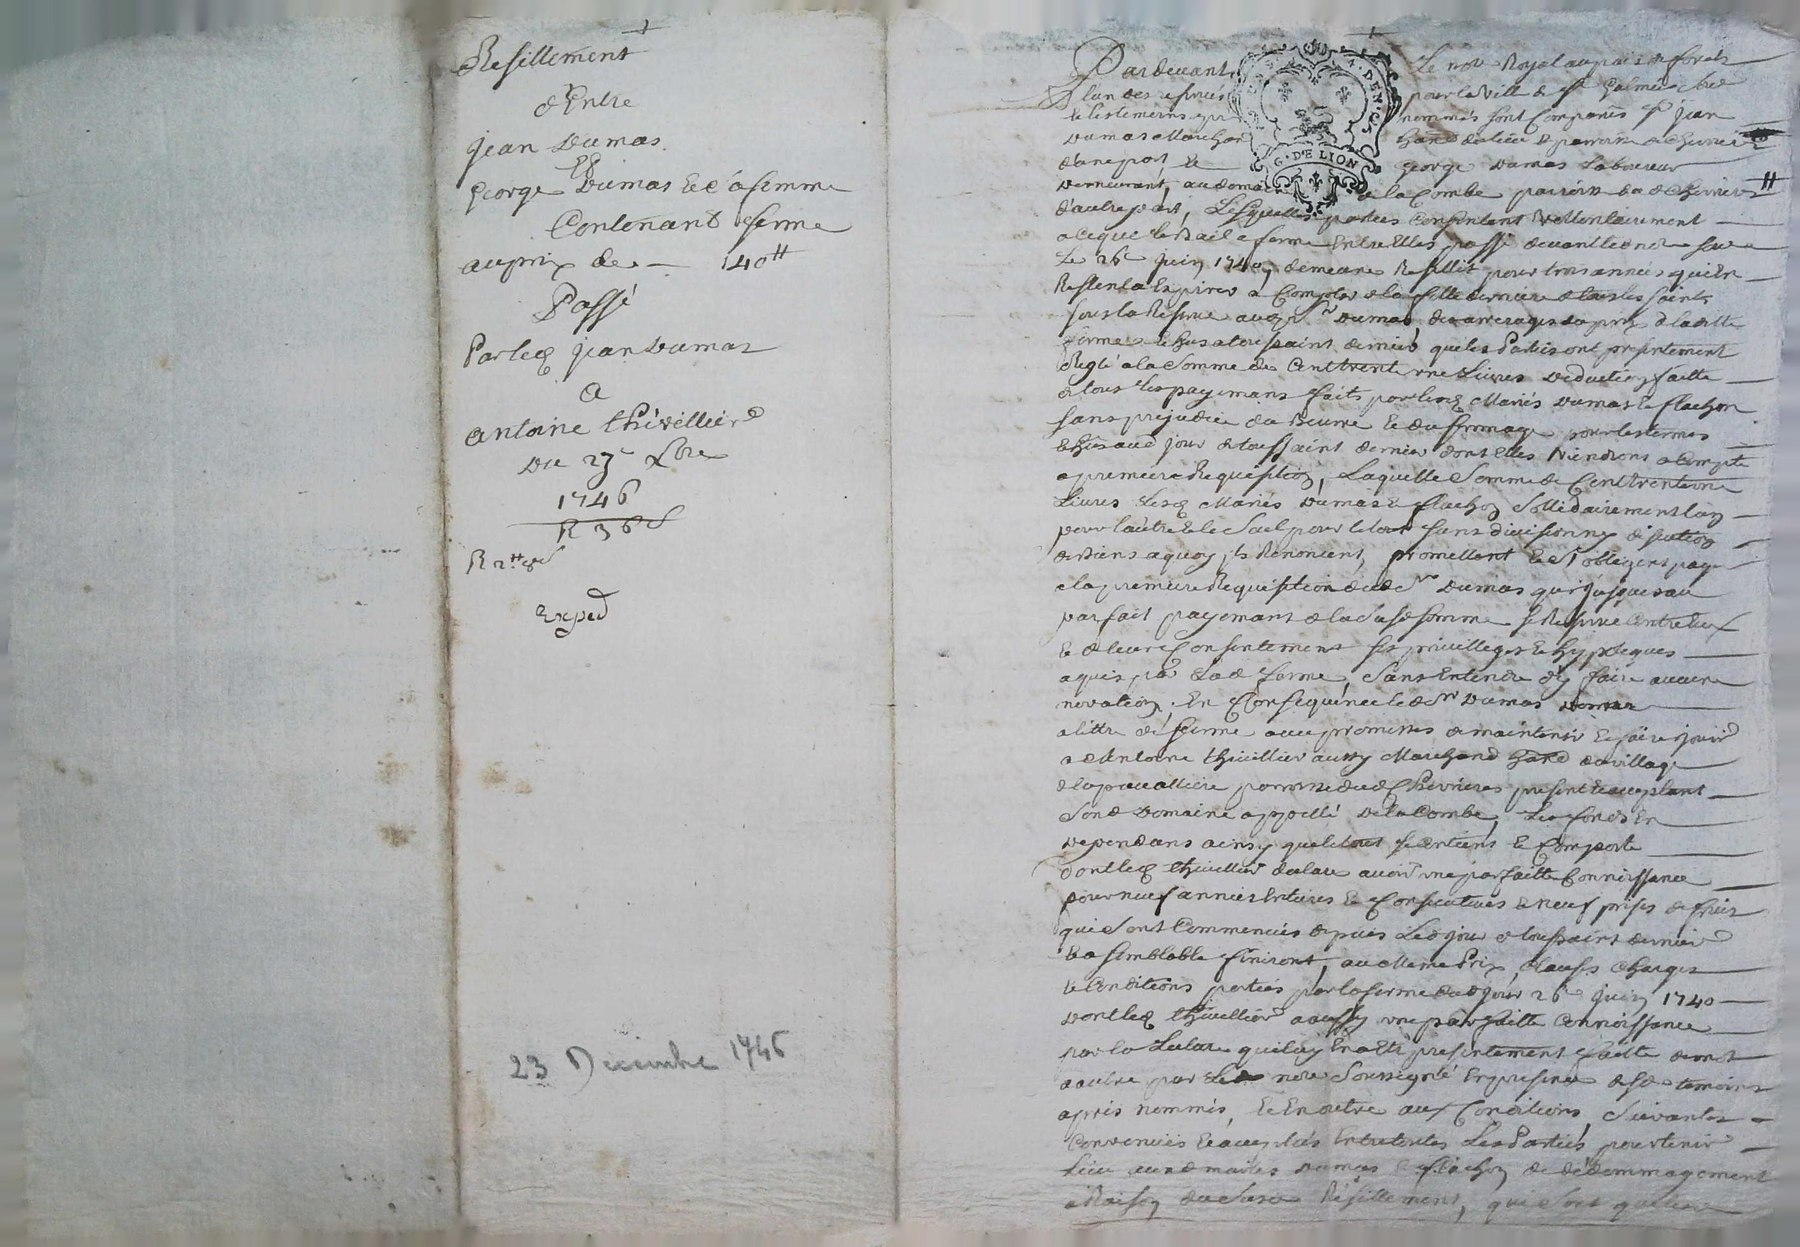 Resillement
d'Entre
jean Dumas
Et
George Dumas Et sa femme
Contenant ferme
au prix de — 140ᵗᵗ
Passé
Par led jean Dumas
A
antoine thivellier
Du 23ᵉ Xbre
1746
R 36ˢ
R 2ᵗᵗ 8ˢ
Exped
23 Décembre 1746
Pardevant Le nore Royal au païs de forets
l'un des reservés pour la ville de st Galmier
& les temoins nommés sont Comparus sr jean
Dumas Marchand
d'une part & George Dumas Laboureur
Demeurant au domaine de la Combe parroisse dud Chevrieres
d'autre part, Lesquelles parties Consentent Vollontairement
a ceque le Bail a ferme Entre Elles passé devant le nore
Le 26e juin 1740, demeure Resillié pour trois années qui En
Restent a Expirer a Compter de la feste derniere de tous les saints
sous la Reserve aud sr Dumas, des arrerages du prix de laditte
ferme Echus a toussaint dernier que les Parties ont presentement
Reglé a la somme de Cent trente une Livres Deduction faitte
de tous les payemans faits par lesd Mariés Dumas Et flachon
sans prejudice du Beurre Et du fromage pour les termes
Echus aud jour de toussaint dernier dont Elles viendront a Compte
a premiere Requisition, Laquelle somme de Cent trente une
Livres Lesd Mariés Dumas Et flachon sollidairement l'un
pour l'autre Et le seul pour le tout sans division ny discution
de Biens a quoy ils Renoncent, promettent Et s'obligent payer
a la premiere Requisition dud sr Dumas qui jusques au
parfait payemant de la susd somme se Reserve Contre Eux
& de leur Consentement ses privilleges & hypoteques
aquis par lad ferme, sans Entendre d'y faire aucune
novation, En Consequence led sr Dumas Donne
a tittre de ferme avec promesses de maintenir & faire jouir
a sr Antoine thivellier aussy Marchand habt du village
parroisse dud Chevrieres present & acceptant
Sond Domaine appellé de la Combe, Les fonds En
Dependans ainsy que le tout se Contient & Comporte
dont led thivellier declare avoir une parfaitte Connoissance
pour neuf années Entieres & Consecutives & neuf prises de fruits
qui sont Commencées depuis Led jour de toussaint dernier
Et a semblable finiront, au Meme Prix, Clauses Charges
& Conditions portées par la ferme dud jour 26e juin 1740
Dont led thivellier a aussy une parfaitte Connoissance
par la Lecture qui luy En a Eté presentement faitte de mot
a autre par Led nore soussigné En presence desd temoins
après nommés, Et En outre aux Conditions, suivantes
Convenuës & acceptées Entre toutes Les Parties pour tenir
Lieu auxd mariés Dumas & flachon de dédommagement
a Raison du susd Resillement, qui sont que